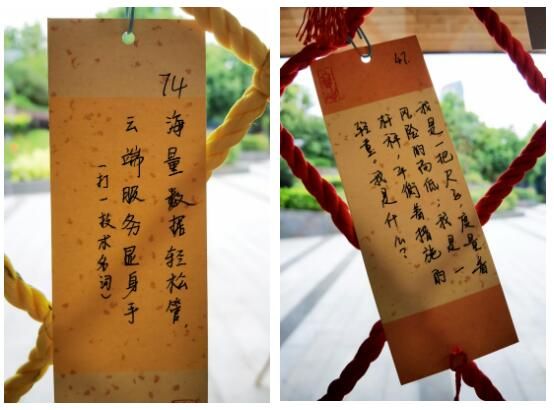 74
海量数据轻松管，
云端服务显身手
（打一技术名词）
47.
我是一把尺子，度量着
风险的高低；我是一
杆秤，平衡着措施的
轻重，我是什么？